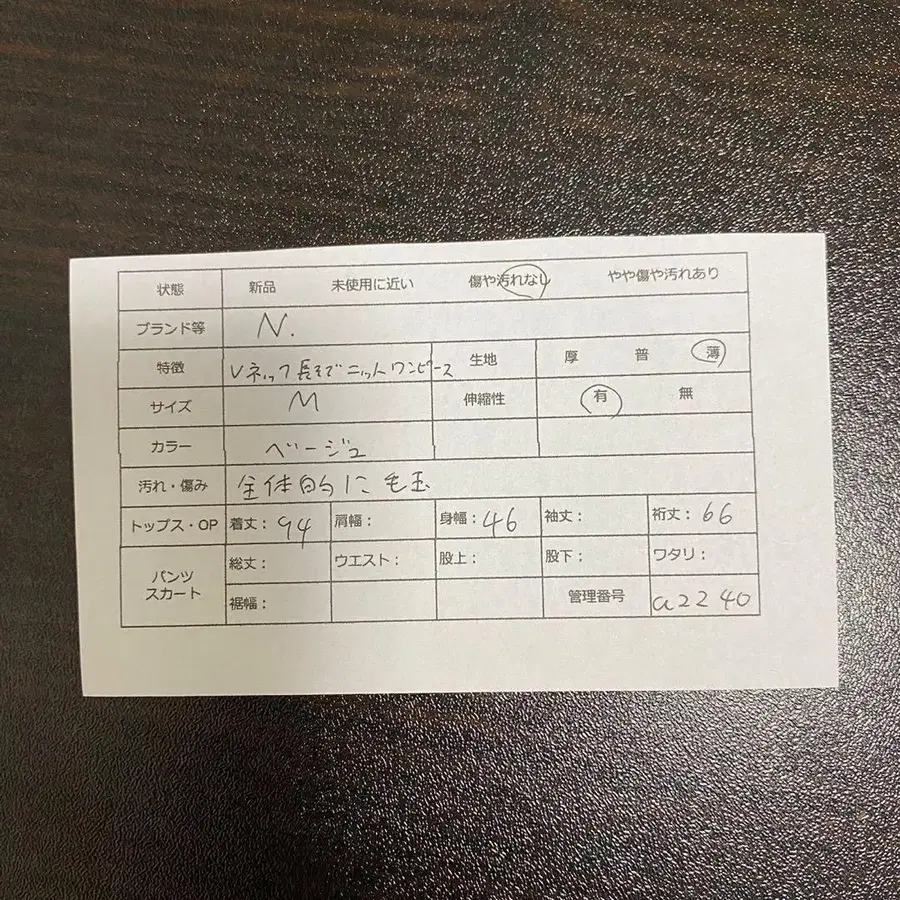 状態 新品 未使用に近い 傷や汚れなし やや傷や汚れあり
ブランド等 N.
特徴 Vネック長そでニットワンピース 生地 厚 普 薄
サイズ M 伸縮性 有 無
カラー ベージュ
汚れ・傷み 全体的に毛玉
トップス・OP 着丈：94 肩幅： 身幅：46 袖丈： 裄丈：66
パンツ スカート 総丈： ウエスト： 股上： 股下： ワタリ：
裾幅： 管理番号 a2240